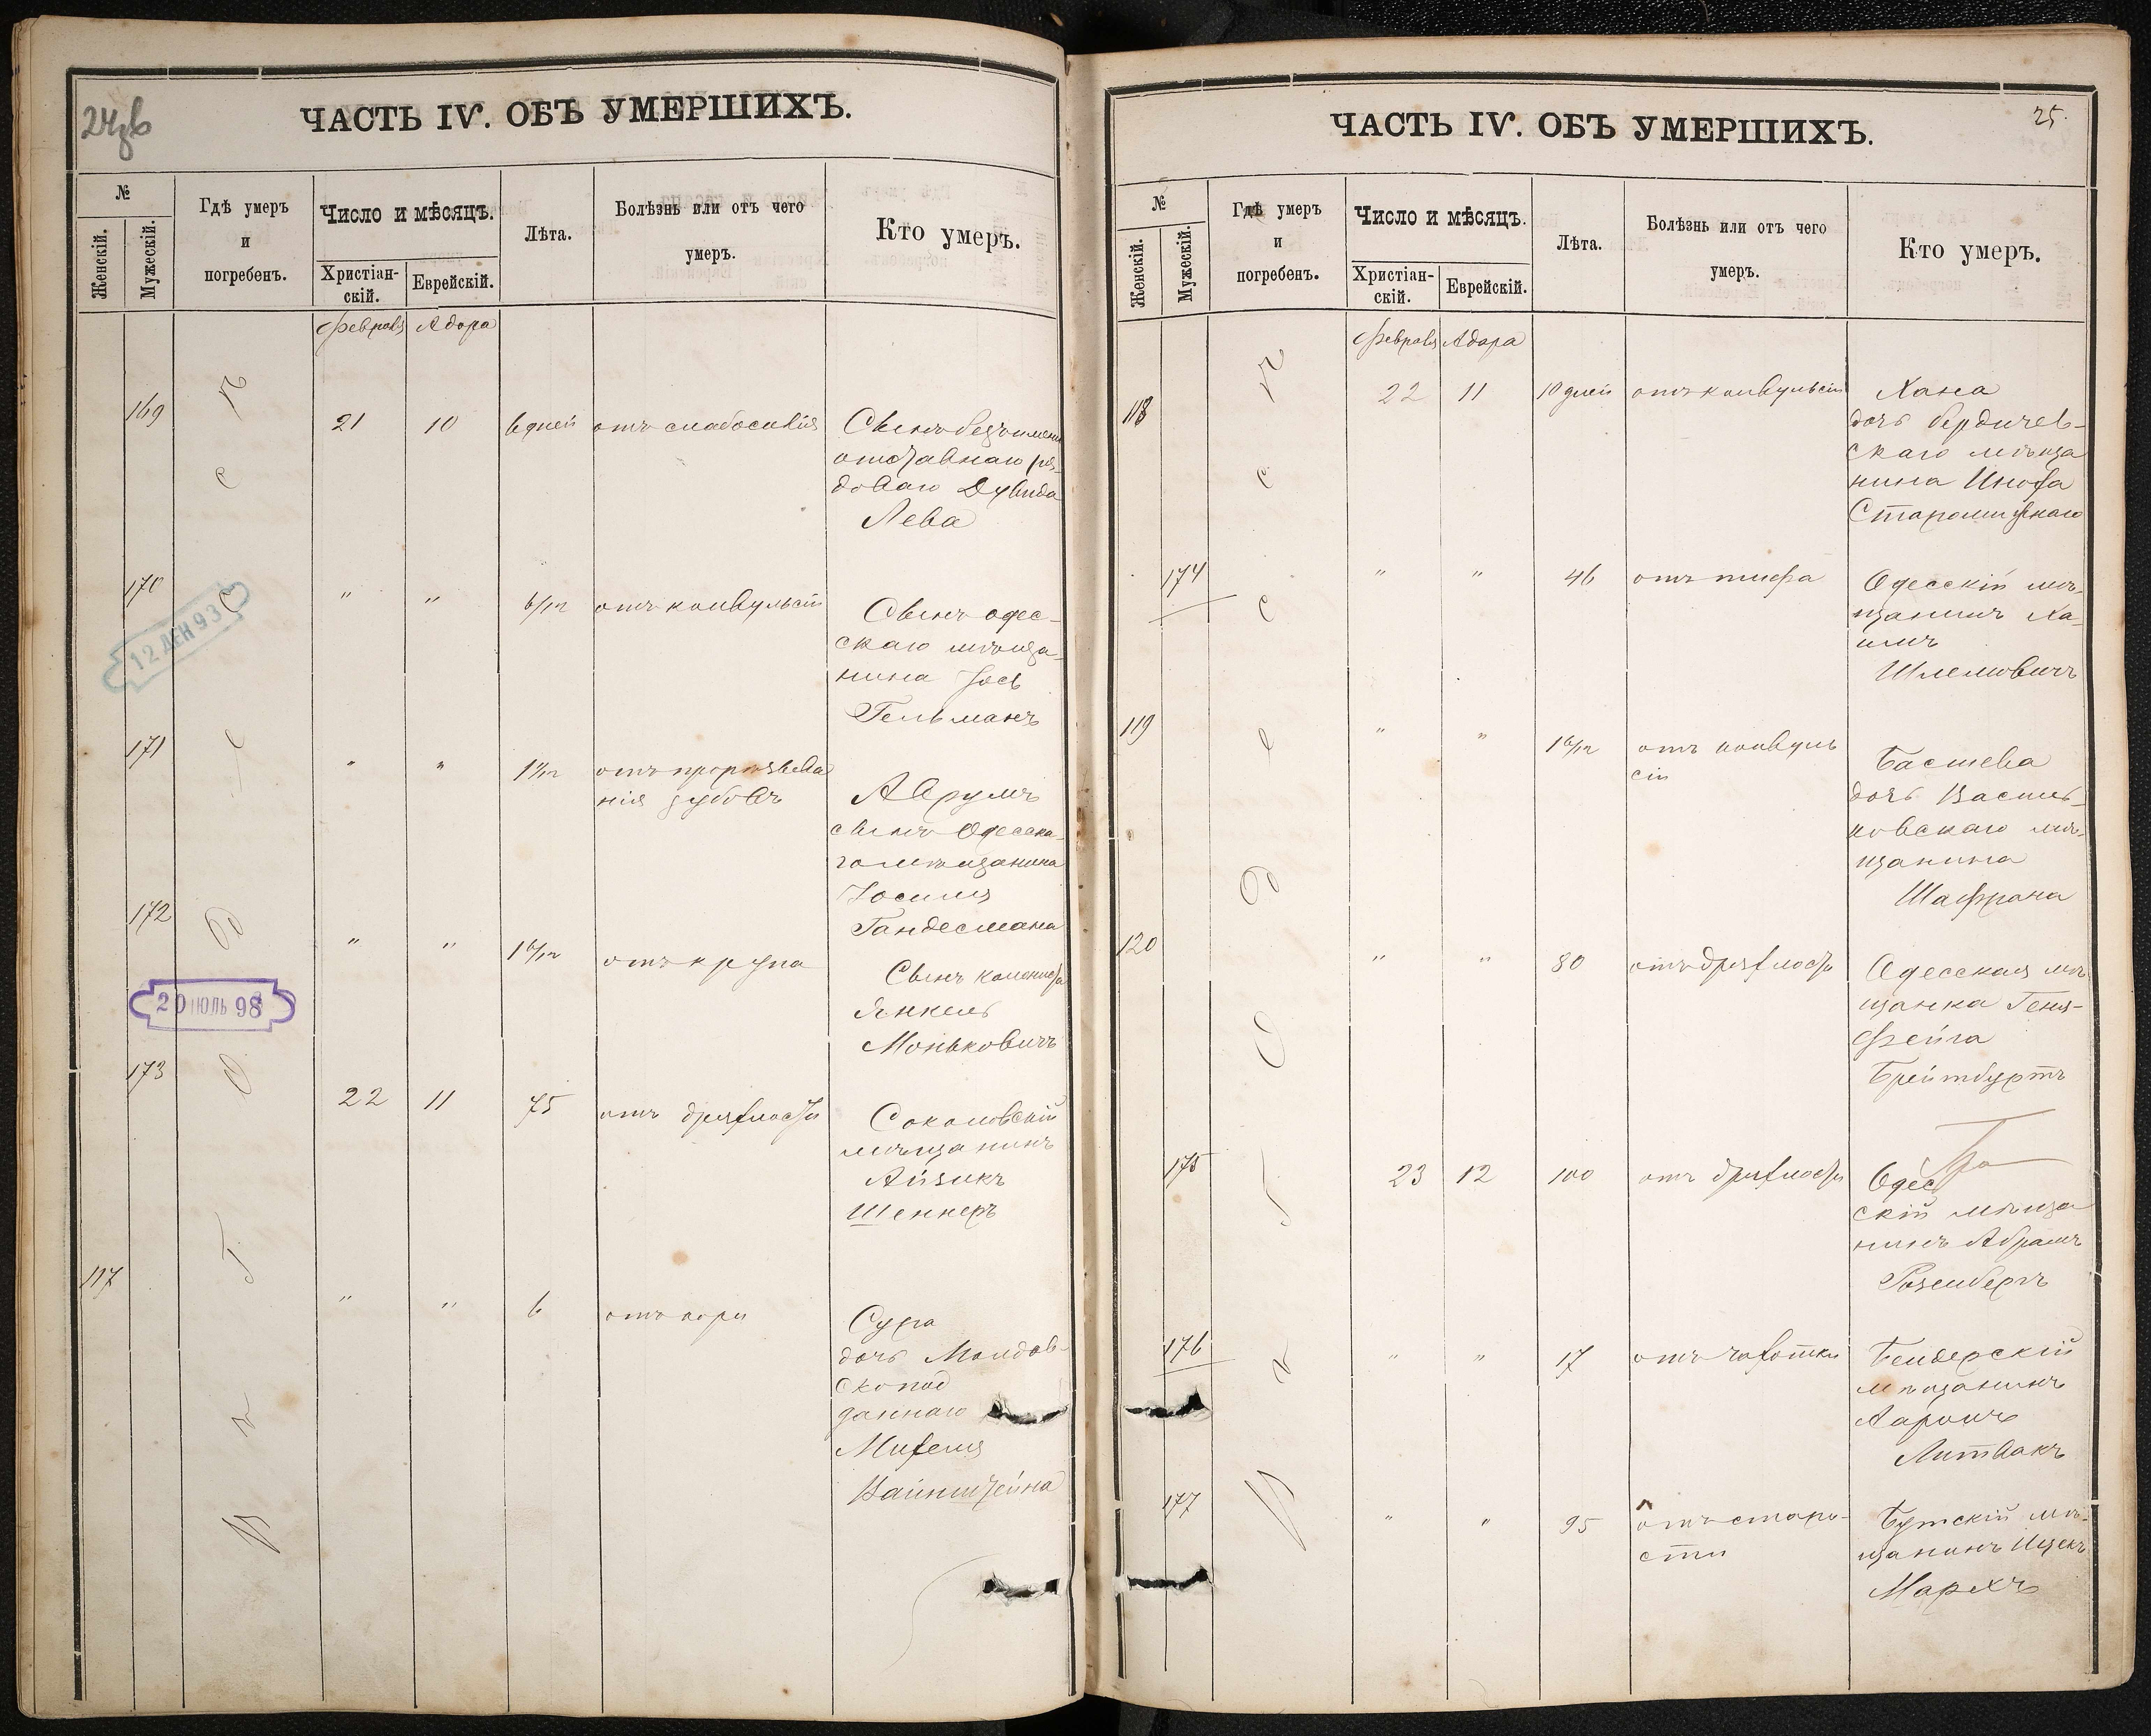 24зв
ЧАСТЬ IV. ОБЪ УМЕРШИХЪ.
№
Женскій.
Мужескій.
Гдѣ умеръ
и
погребенъ.
Число и мѣсяцъ.
Христіан-
скій.
Еврейскій.
Лѣта.
Болѣзнь или отъ чего
умеръ.
Кто умеръ.
Февраля Адора
169 21 10 6 дней отъ слабосилія Сынъ безъимени
отставнаго ря-
доваго Дувида
Лева
170 " " 6/12 отъ конвульсіи Сынъ одес-
скаго мѣща-
нина Іось
Гельманъ
12 ДЕН 93
171 " " отъ прорѣзыва
нія зубовъ Аврумъ
сынъ Одесска-
го мѣщанина
Іосиля
Гандесмана
172 " " 1 6/12 отъ крупа Сынъ колониста
Янкель
Моньковичъ
20 ІЮЛЬ 98
173 22 11 75 отъ дряхлости Соколовскій
мѣщанинъ
Айзикъ
Шенкеръ
117 " " 6 отъ кори Сура
дочь Молдав-
скопод
даннаго
Михеля
Вайнштейна
В г. О д е с с ѣ
25.
ЧАСТЬ IV. ОБЪ УМЕРШИХЪ.
№
Женскій.
Мужескій.
Гдѣ умеръ
и
погребенъ.
Число и мѣсяцъ.
Христіан-
скій.
Еврейскій.
Лѣта.
Болѣзнь или отъ чего
умеръ.
Кто умеръ.
Февраля Адора
118 22 11 10 дней отъ конвульсіи Хана
дочь бердичев-
скаго мѣща
нина
174 " " 46 отъ тифа Одесскій мѣ-
щанинъ Ха-
имъ
Шлемовичъ
119 " " 1 6/12 отъ конвуль
сіи Басшева
дочь Василь-
ковскаго мѣ-
щанина
Шафрана
120 " " 80 отъ дряхлости Одесская мѣ
щанка Геня-
Фейга
Брейтбуртъ
175 23 12 100 отъ дряхлости Одес
скій мѣща
нинъ Абрамъ
Розенбергъ
176 " " 17 отъ чахотки Бендерскій
мѣщанинъ
Ааронъ
Литвакъ
177 " " 95 отъ старо-
сти мѣ-
щанинъ Ицекъ
Мархъ
В г. О д е с с ѣ